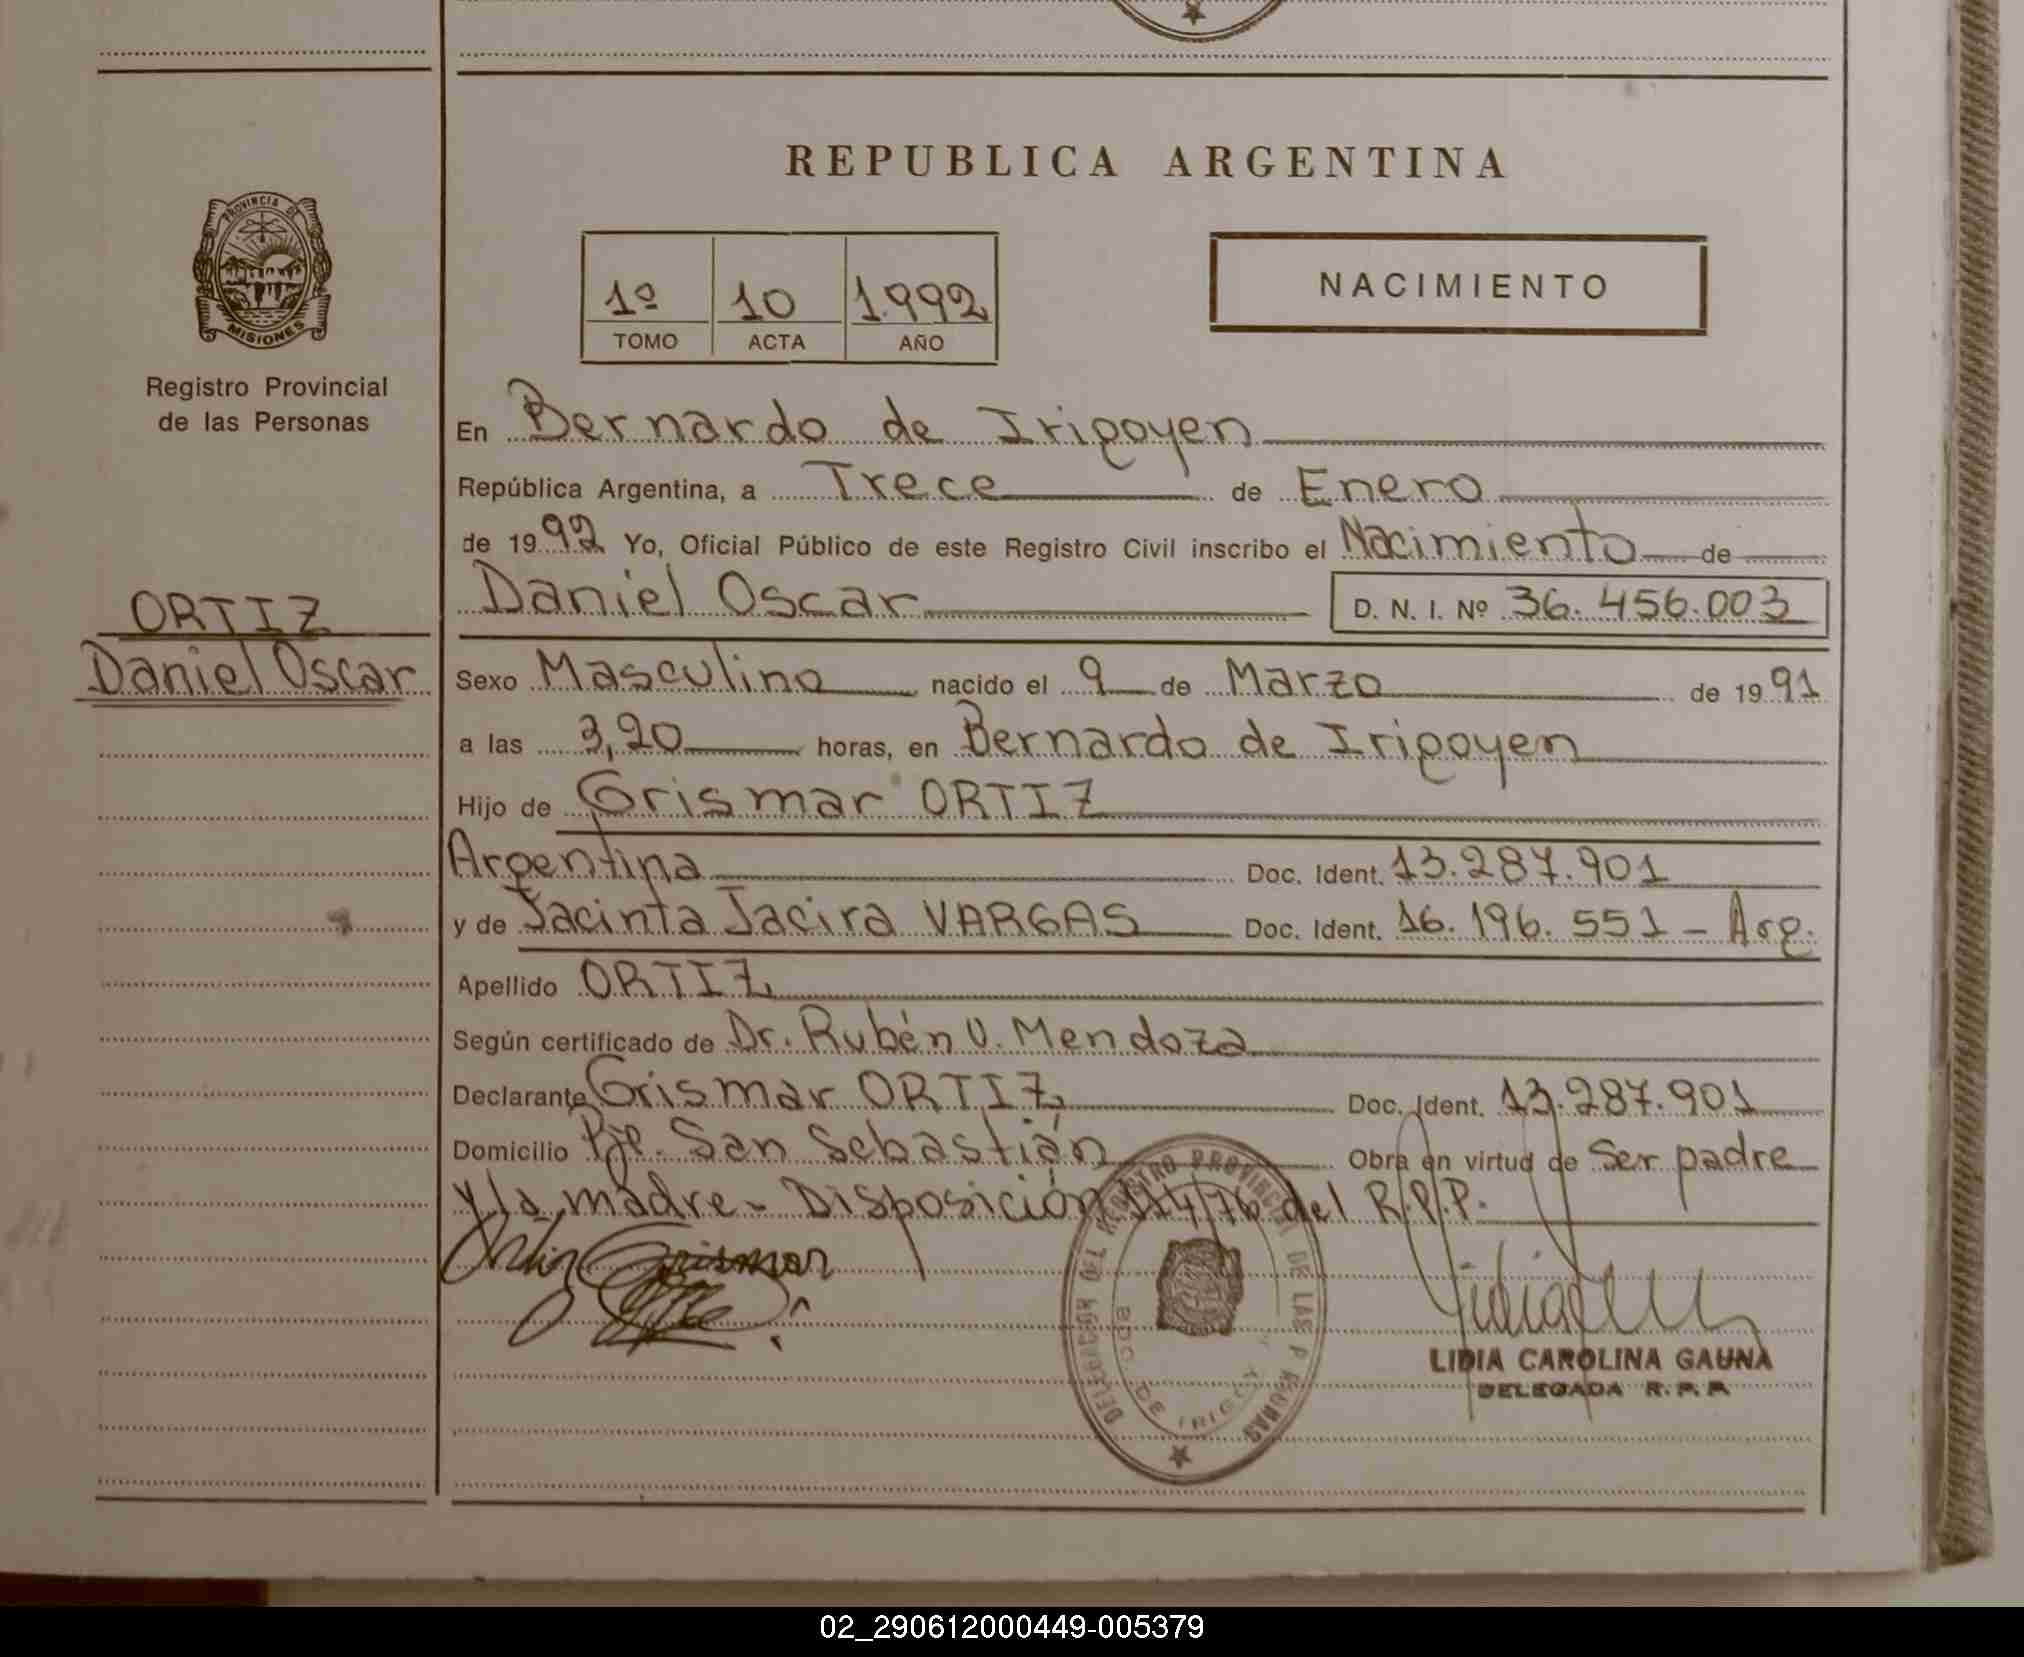 REPUBLICA ARGENTINA
PROVINCIA DE
MISIONES
Registro Provincial
de las Personas
1º 10 1.992
TOMO ACTA AÑO
NACIMIENTO
En Bernardo de Irigoyen
República Argentina, a Trece de Enero
de 1992 Yo, Oficial Público de este Registro Civil inscribo el Nacimiento de
Daniel Oscar D. N. I. Nº 36.456.003
ORTIZ
Daniel Oscar
Sexo Masculino nacido el 9 de Marzo de 1991
a las 3,20 horas, en Bernardo de Irigoyen
Hijo de Grismar ORTIZ
Argentina Doc. Ident. 13.287.901
y de Jacinta Jacira VARGAS Doc. Ident. 16.196.551 - Arg.
Apellido ORTIZ
Según certificado de Dr. Rubén V. Mendoza
Declarante Grismar ORTIZ Doc. Ident. 13.287.901
Domicilio Pje. San Sebastián Obra en virtud de Ser padre
y la madre - Disposición 114/76 del R.P.P.
Ortiz Grismar
DELEGACION DEL REGISTRO PROVINCIAL DE LAS PERSONAS
BDO. DE IRIGOY
LIDIA CAROLINA GAUNA
DELEGADA R.P.P.
02_290612000449-005379